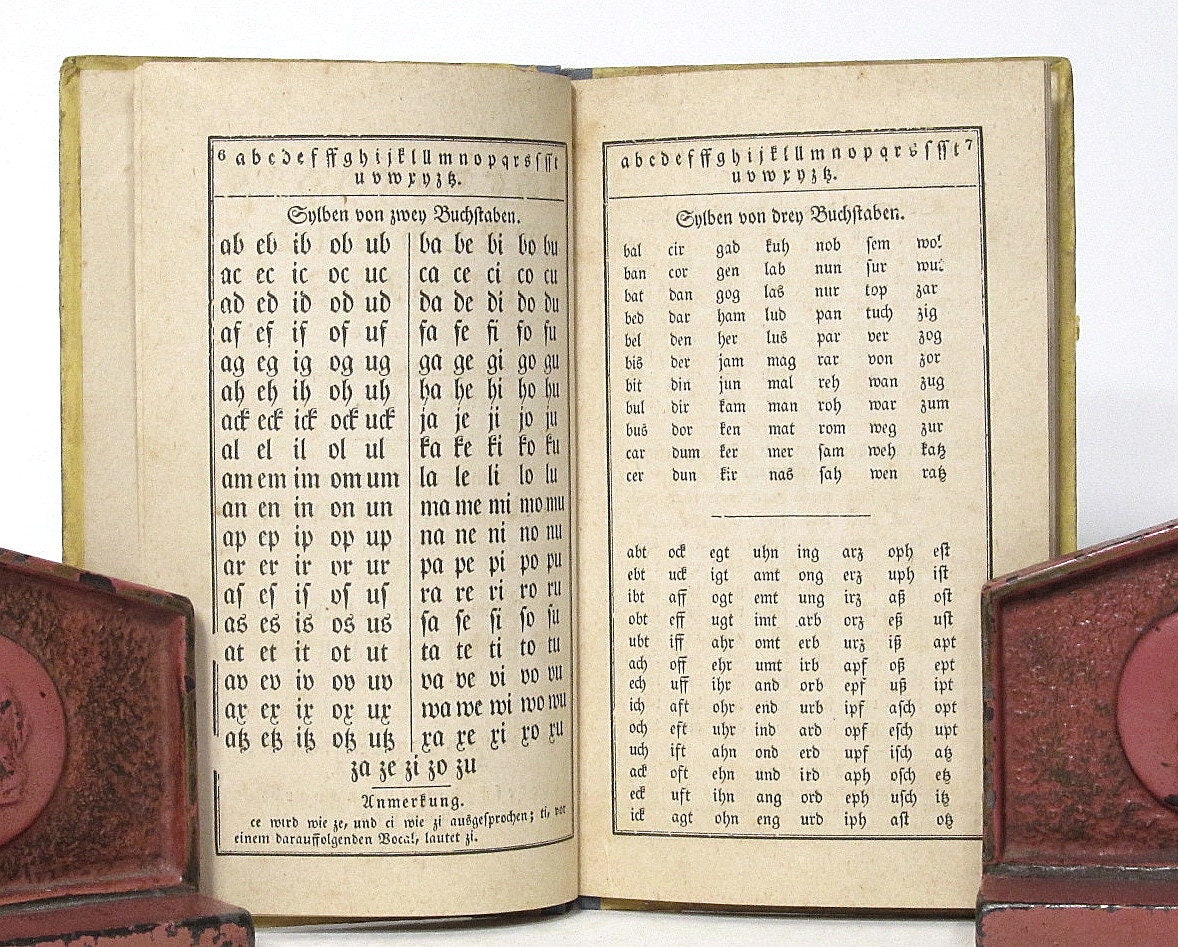 6 a b c d e f ff g h i j k l ll m n o p q r s ſ ſſ t
u v w x y z tz.
Sylben von zwey Buchſtaben.
ab eb ib ob ub ba be bi bo bu
ac ec ic oc uc ca ce ci co cu
ad ed id od ud da de di do du
af ef if of uf fa fe fi fo fu
ag eg ig og ug ga ge gi go gu
ah eh ih oh uh ha he hi ho hu
ack eck ick ock uck ja je ji jo ju
al el il ol ul ka ke ki ko ku
am em im om um la le li lo lu
an en in on un ma me mi mo mu
ap ep ip op up na ne ni no nu
ar er ir or ur pa pe pi po pu
aſ eſ iſ oſ uſ ra re ri ro ru
as es is os us ſa ſe ſi ſo ſu
at et it ot ut ta te ti to tu
av ev iv ov uv va ve vi vo vu
ax ex ix ox ux wa we wi wo wu
atz etz itz otz utz xa xe xi xo xu
za ze zi zo zu
Anmerkung.
ce wird wie ze, und ci wie zi ausgeſprochen; ti, vor
einem darauffolgenden Vocal, lautet zi.
a b c d e f ff g h i j k l ll m n o p q r s ſ ſſ t 7
u v w x y z tz.
Sylben von drey Buchſtaben.
bal cir gad kuh nob ſem wol
ban cor gen lab nun ſur
bat dan gog las nur top zar
bed dar ham lud pan tuch zig
bel den her lus par ver zog
bis der jam mag rar von zor
bit din jun mal reh wan zug
bul dir kam man roh war zum
bus dor ken mat rom weg zur
car dum ker mer ſam weh katz
cer dun kir nas ſah wen ratz
abt ock egt uhn ing arz oph eſt
ebt uck igt amt ong erz uph iſt
ibt aff ogt emt ung irz aß oſt
obt eff ugt imt arb orz eß uſt
ubt iff ahr omt erb urz iß apt
ach off ehr umt irb apf oß ept
ech uff ihr and orb epf uß ipt
ich aft ohr end urb ipf aſch opt
och eft uhr ind ard opf eſch upt
uch ift ahn ond erd upf iſch atz
ack oft ehn und ird aph oſch etz
eck uft ihn ang ord eph uſch itz
ick agt ohn eng urd iph aſt otz